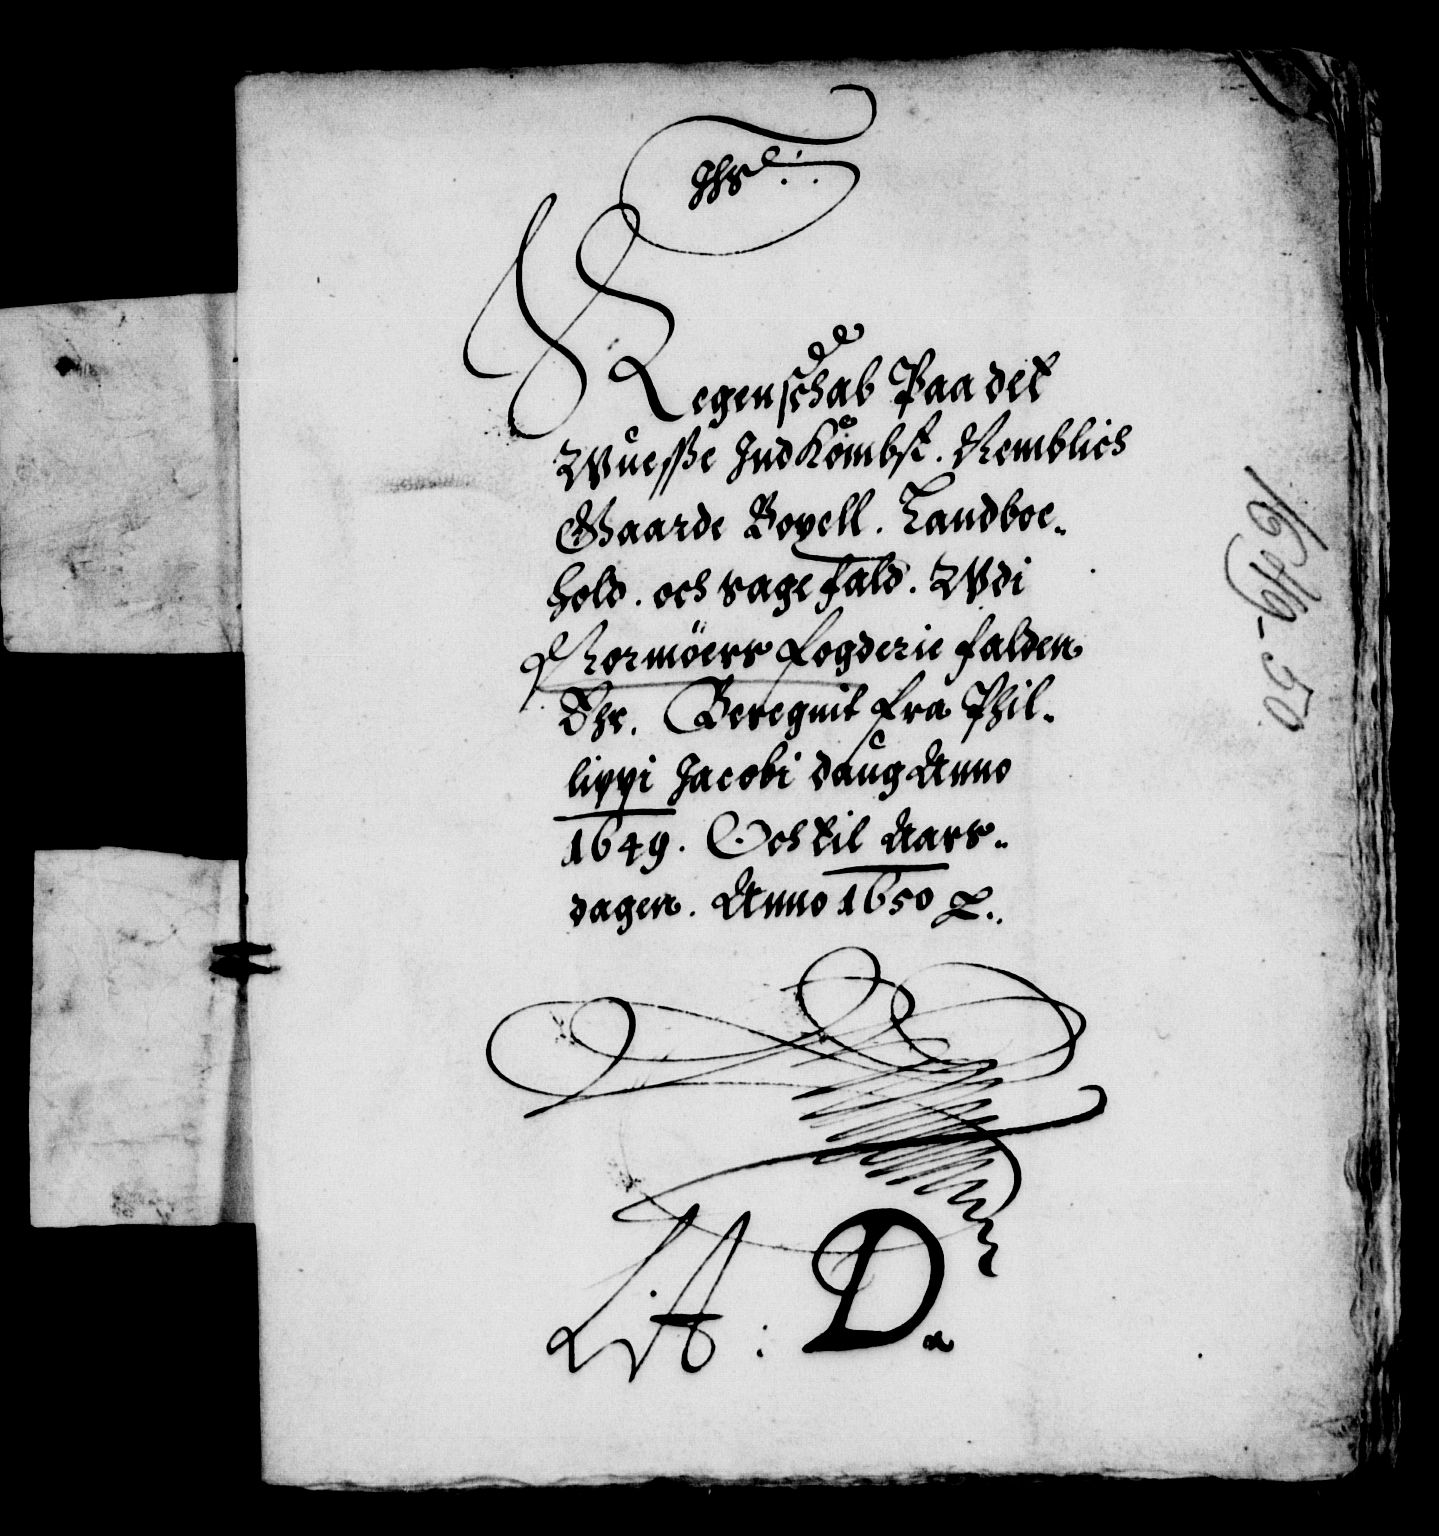 Jhs:
Regenschab Paa det
Wuesße Jndkombst. Nemblich
Gaarde Boyell. Landboe-
hold. och sagefald. Wdi
Normöers fogderie falden
Ehr. Beregnit fra Phil-
lippi Jacobi daug Anno
1649. Och til Aars-
dagen. Anno 1650 &.
Lit: D.
1649-50